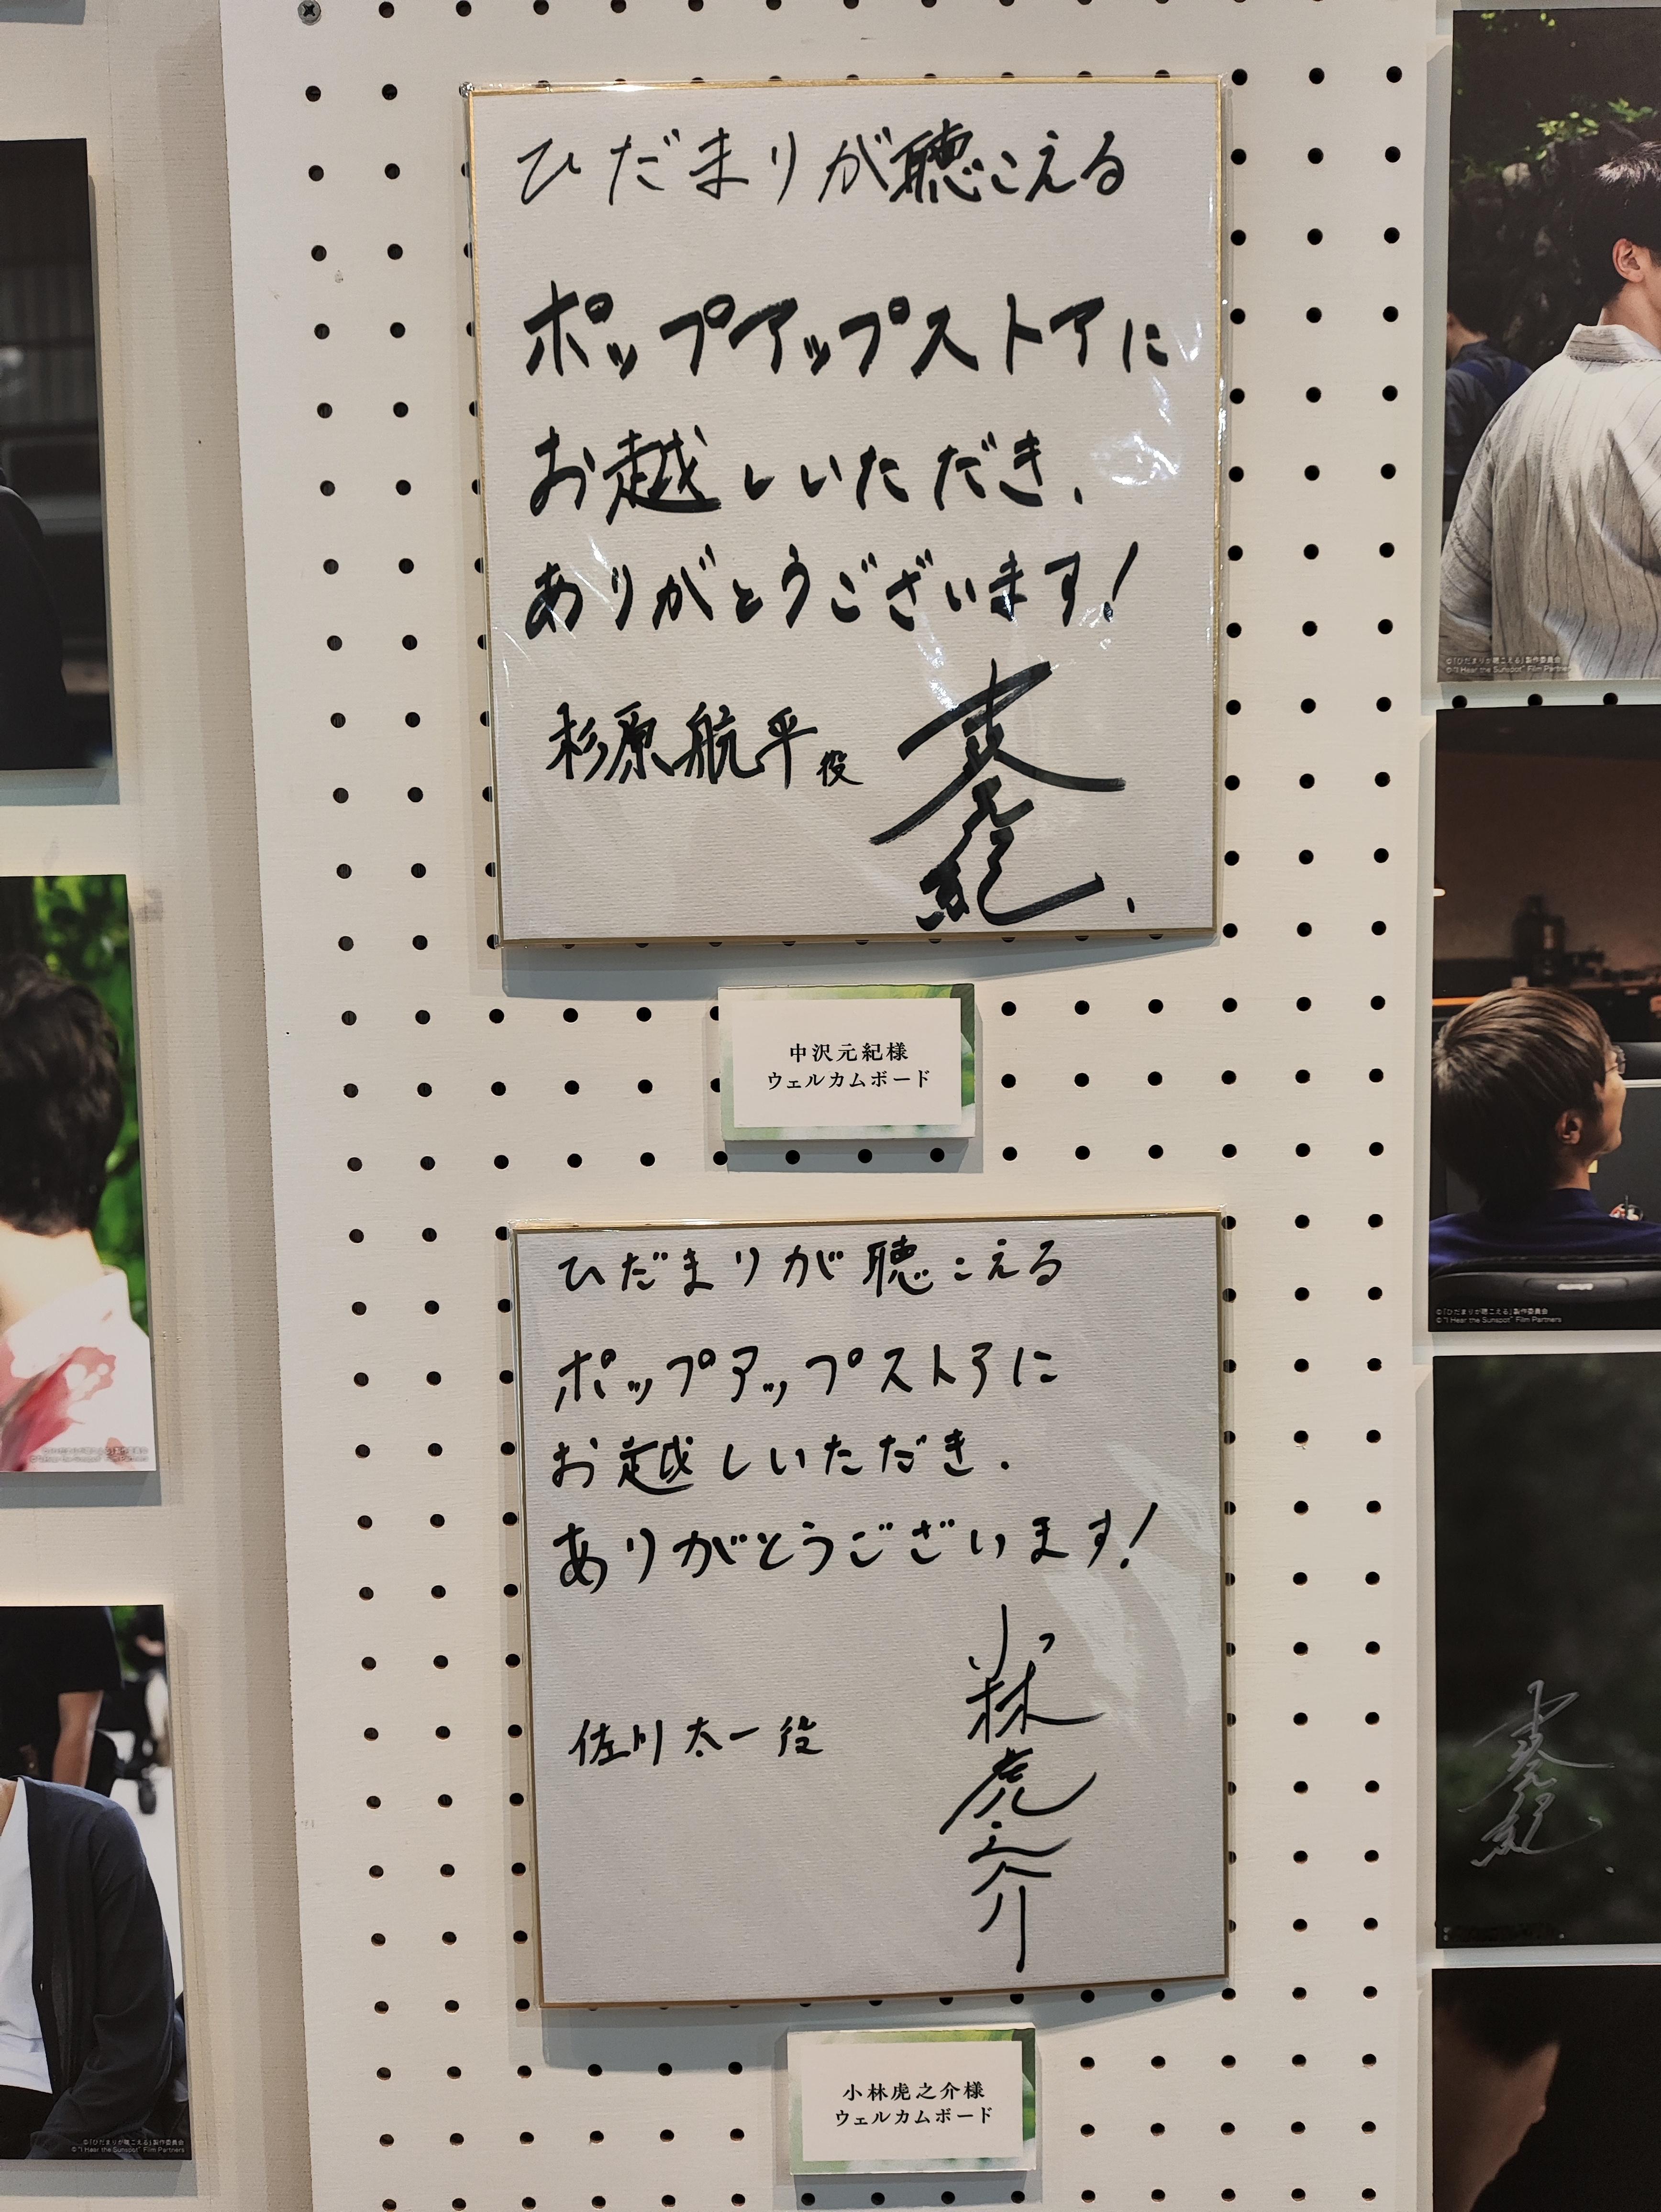 ひだまりが聴こえる
ポップアップストアに
お越しいただき、
ありがとうございます!
杉原航平役
中沢元紀様
ウェルカムボード
ひだまりが聴こえる
ポップアップストアに
お越しいただき、
ありがとうございます!
佐川太一役
小林虎之介
小林虎之介様
ウェルカムボード
©「ひだまりが聴こえる」製作委員会
©"I Hear the Sunspot" Film Partners
©「ひだまりが聴こえる」製作委員会
©"I Hear the Sunspot" Film Partners
©「ひだまりが聴こえる」製作委員会
©"I Hear the Sunspot" Film Partners